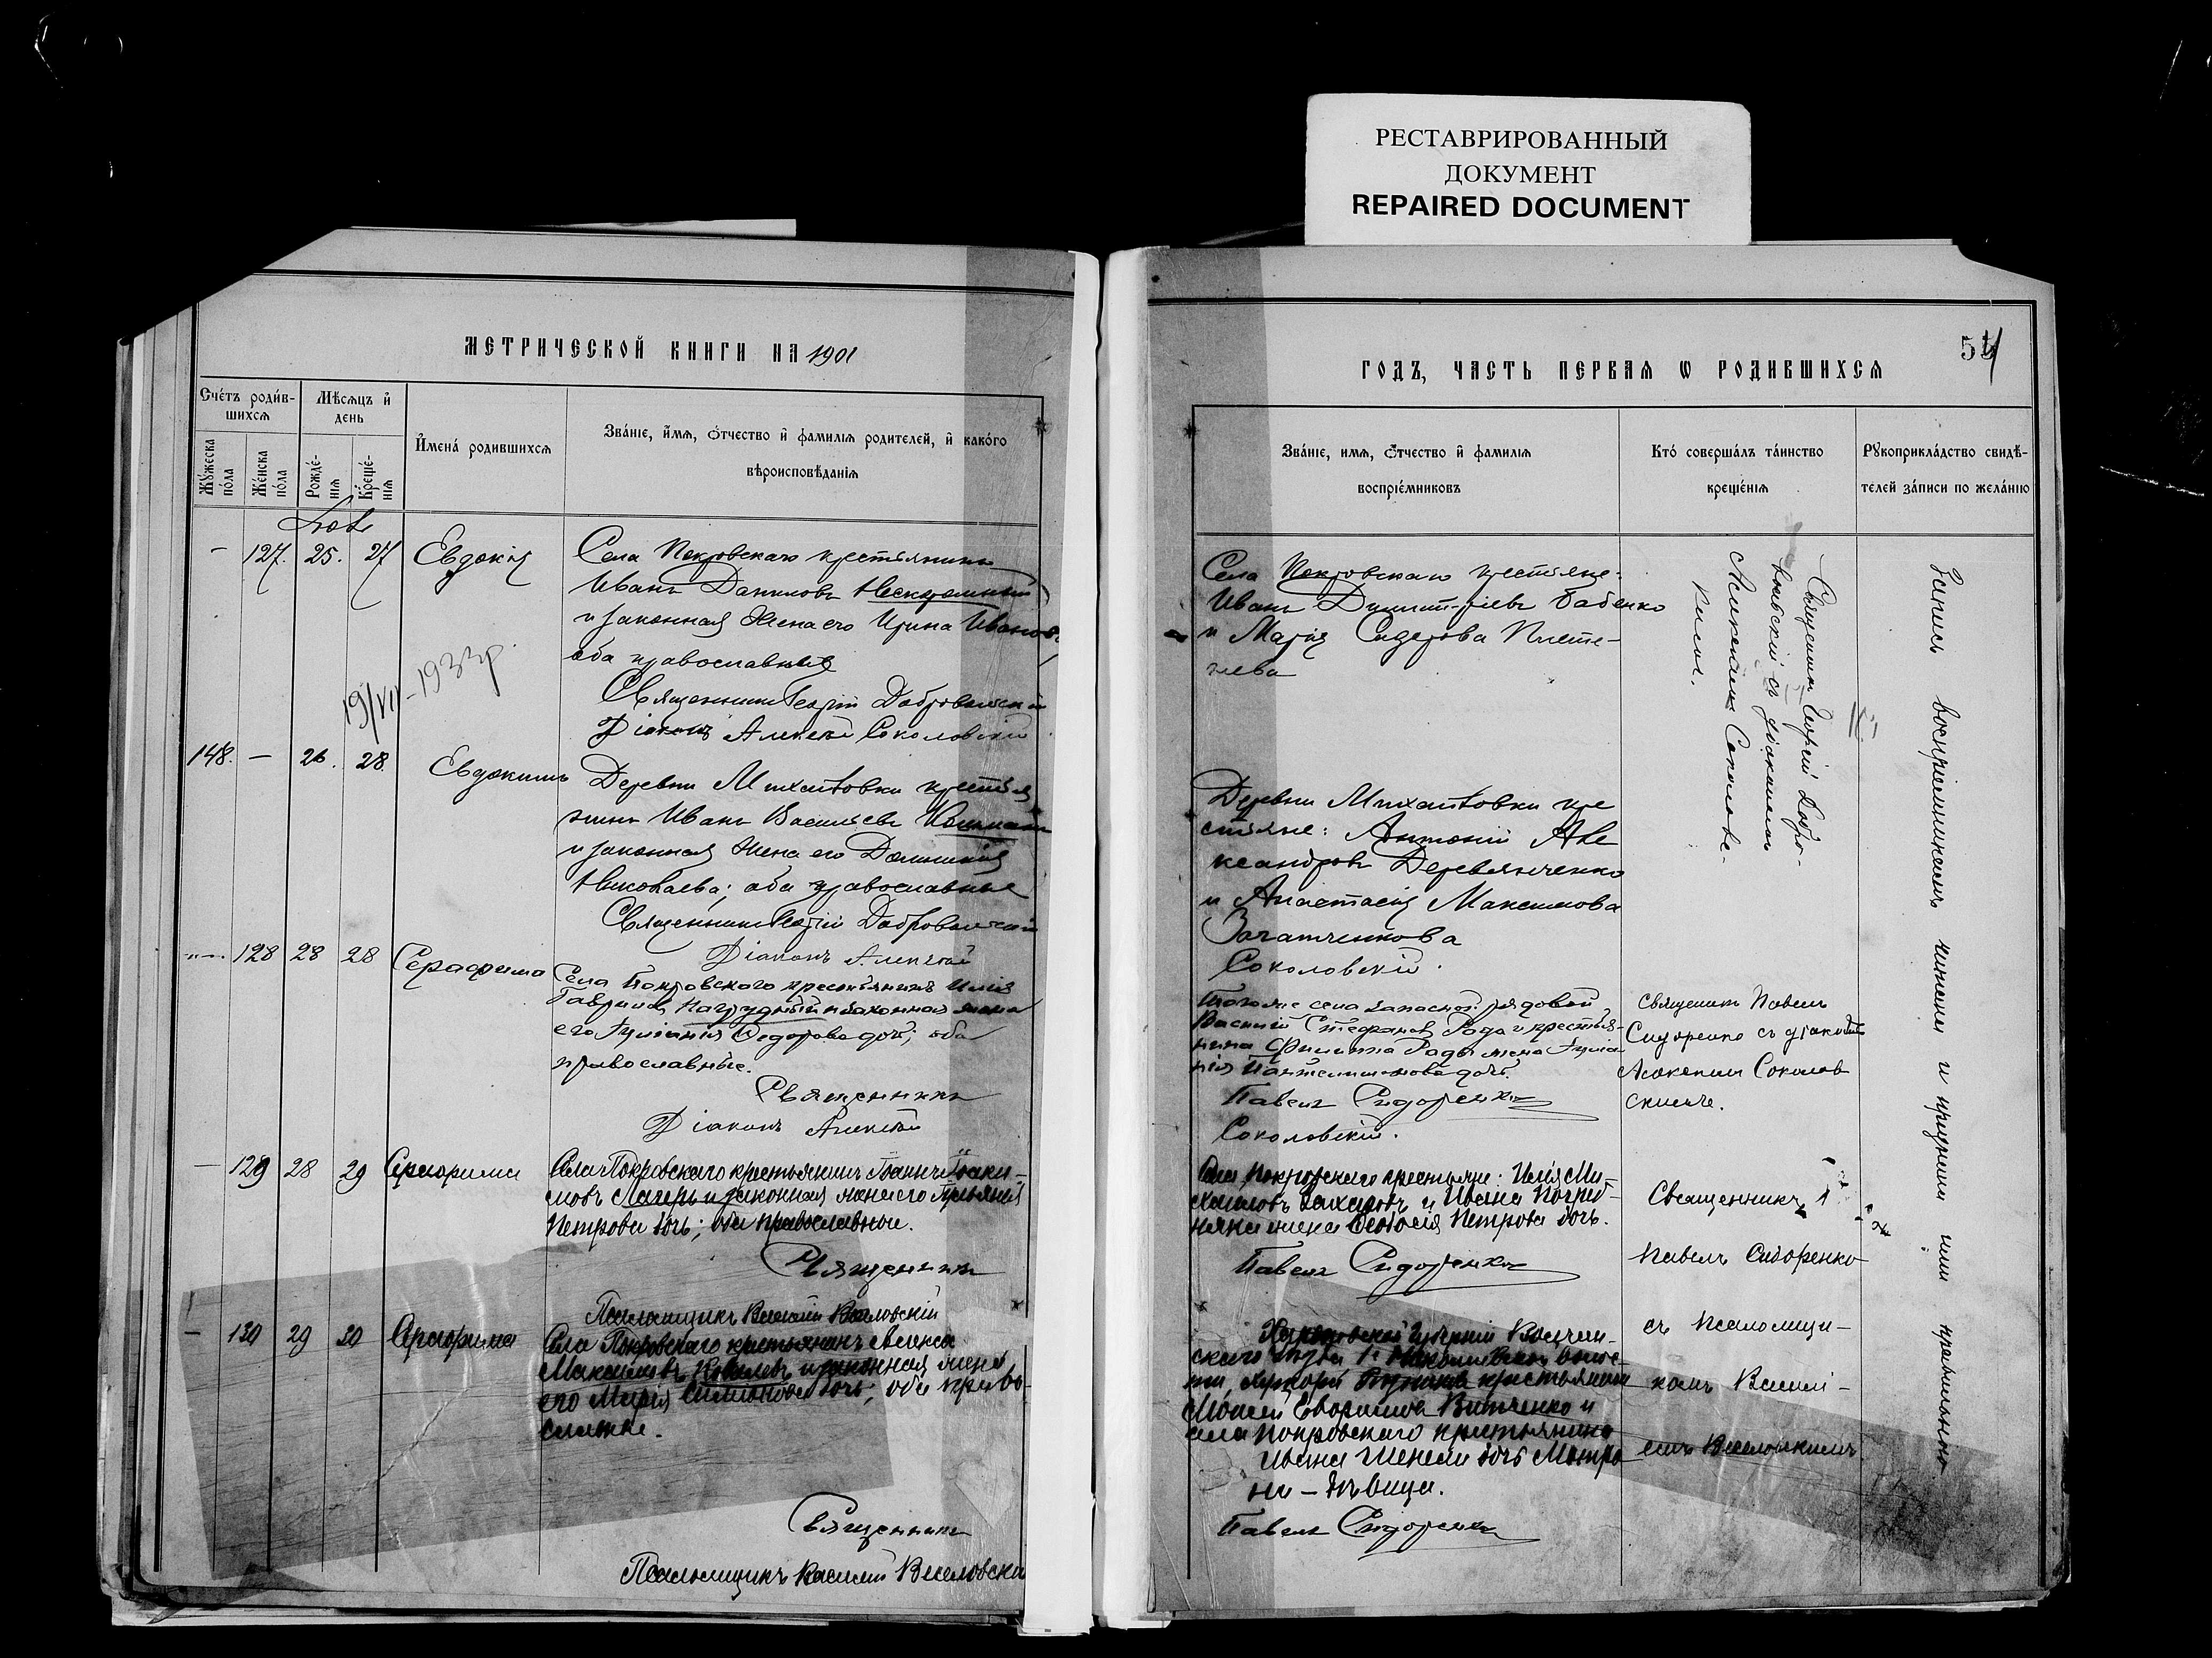 РЕСТАВРИРОВАННЫЙ
ДОКУМЕНТ
REPAIRED DOCUMENT
МЕТРИЧЕСКОЙ КНИГИ НА 1901
Счéтъ роди́в-
шихсѧ
Мѣсѧцъ и҆
день
Мꙋ́жеска
по́ла
Же́нска
по́ла
Рожде́-
нїѧ
Креще́-
нїѧ
И҆мена́ родившихсѧ
Зва́нїе, и҆́мѧ, ѻ҆́тчество и҆ фамилїѧ родителей, и҆ како́го
вѣроисповѣ́данїѧ
127. 25. 27 Евдокія
Села Покровскаго крестьянинъ
Иванъ Даниловъ Нескромный
и законная жена его Ирина Иванов
оба православные
Священникъ Георгій Добровольскій
Діаконъ Алексѣй Соколовскій
19/VII-1933р.
148. — 26. 28. Евдокимъ
Деревни Михайловки крестья
нинъ Иванъ Васильевъ
и законная жена его Домникія
Николаева; оба православные
Священникъ Георгій Добровольскій
Діаконъ Алексѣй
128 28 28 Серафима
Села Покровского крестьянинъ Илія
Гавриловъ и законная жена
его Іуліанія Ѳедорова дочь; оба
православные.
Священникъ
Діаконъ Алексѣй
— 129 28 29 Серафима
Села Покровского крестьянинъ Іоаннъ Іоаки-
мовъ и законная жена его
Петрова дочь; оба православные.
Священникъ
Псаломщикъ Василій Веселовскій
— 130 29 30 Серафима
Села Покровского крестьянинъ
Максимовъ Ковалевъ и законная жена
его Марія дочь; оба право-
славные.
Священникъ
Псаломщикъ Василій Веселовскій
54
ГОДЪ, ЧАСТЬ ПЕРВАѦ Ѡ РОДИВШИХСѦ
Зва́нїе, имѧ, ѻ҆тчество и҆ фамилїѧ
воспрїе́мниковъ
Кто́ соверша́лъ та́инство
креще́нїѧ
Рꙋкоприкла́дство свидѣ́-
телей за́писи по жела́нїю
Села Покровскаго крестьяне:
Иванъ Димитріевъ Бабенко
и Марія Сидорова Плете-
нева
Священникъ Георгій Добро-
вольскій съ діакономъ
Алексѣемъ Соколовс-
кимъ.
Запись воспріемниковъ чинена и прудними ими правильно
Деревни Михайловки кре
стьяне: Антоній Але
ксандровъ Деревянченко
и Анастасія Максимова
Соколовскій.
Того же села запасной рядовой
Василій Стефановъ Рада и крестья-
нина Филиппа Рады жена Іуліа
нія Пантелимонова дочь.
Павелъ Сидоренко
Соколовскій.
Священникъ Павелъ
Сидоренко съ діакономъ
Алексѣемъ Соколов
скимъ.
Села Покровского крестьяне: Илія Ми-
хаиловъ Захаровъ и Ивана
жена Ѳеодосія Петрова дочь.
Павелъ Сидоренко
Священникъ
Павелъ Сидоренко
съ псаломщи-
комъ Василі-
емъ Веселовскимъ
Харьковской губерніи Волчан-
скаго уѣзда
хутора крестьянинъ
Моисей Витченко и
села Покровскаго крестьянина
Ивана дочь Матро
на — дѣвица.
Павелъ Сидоренко